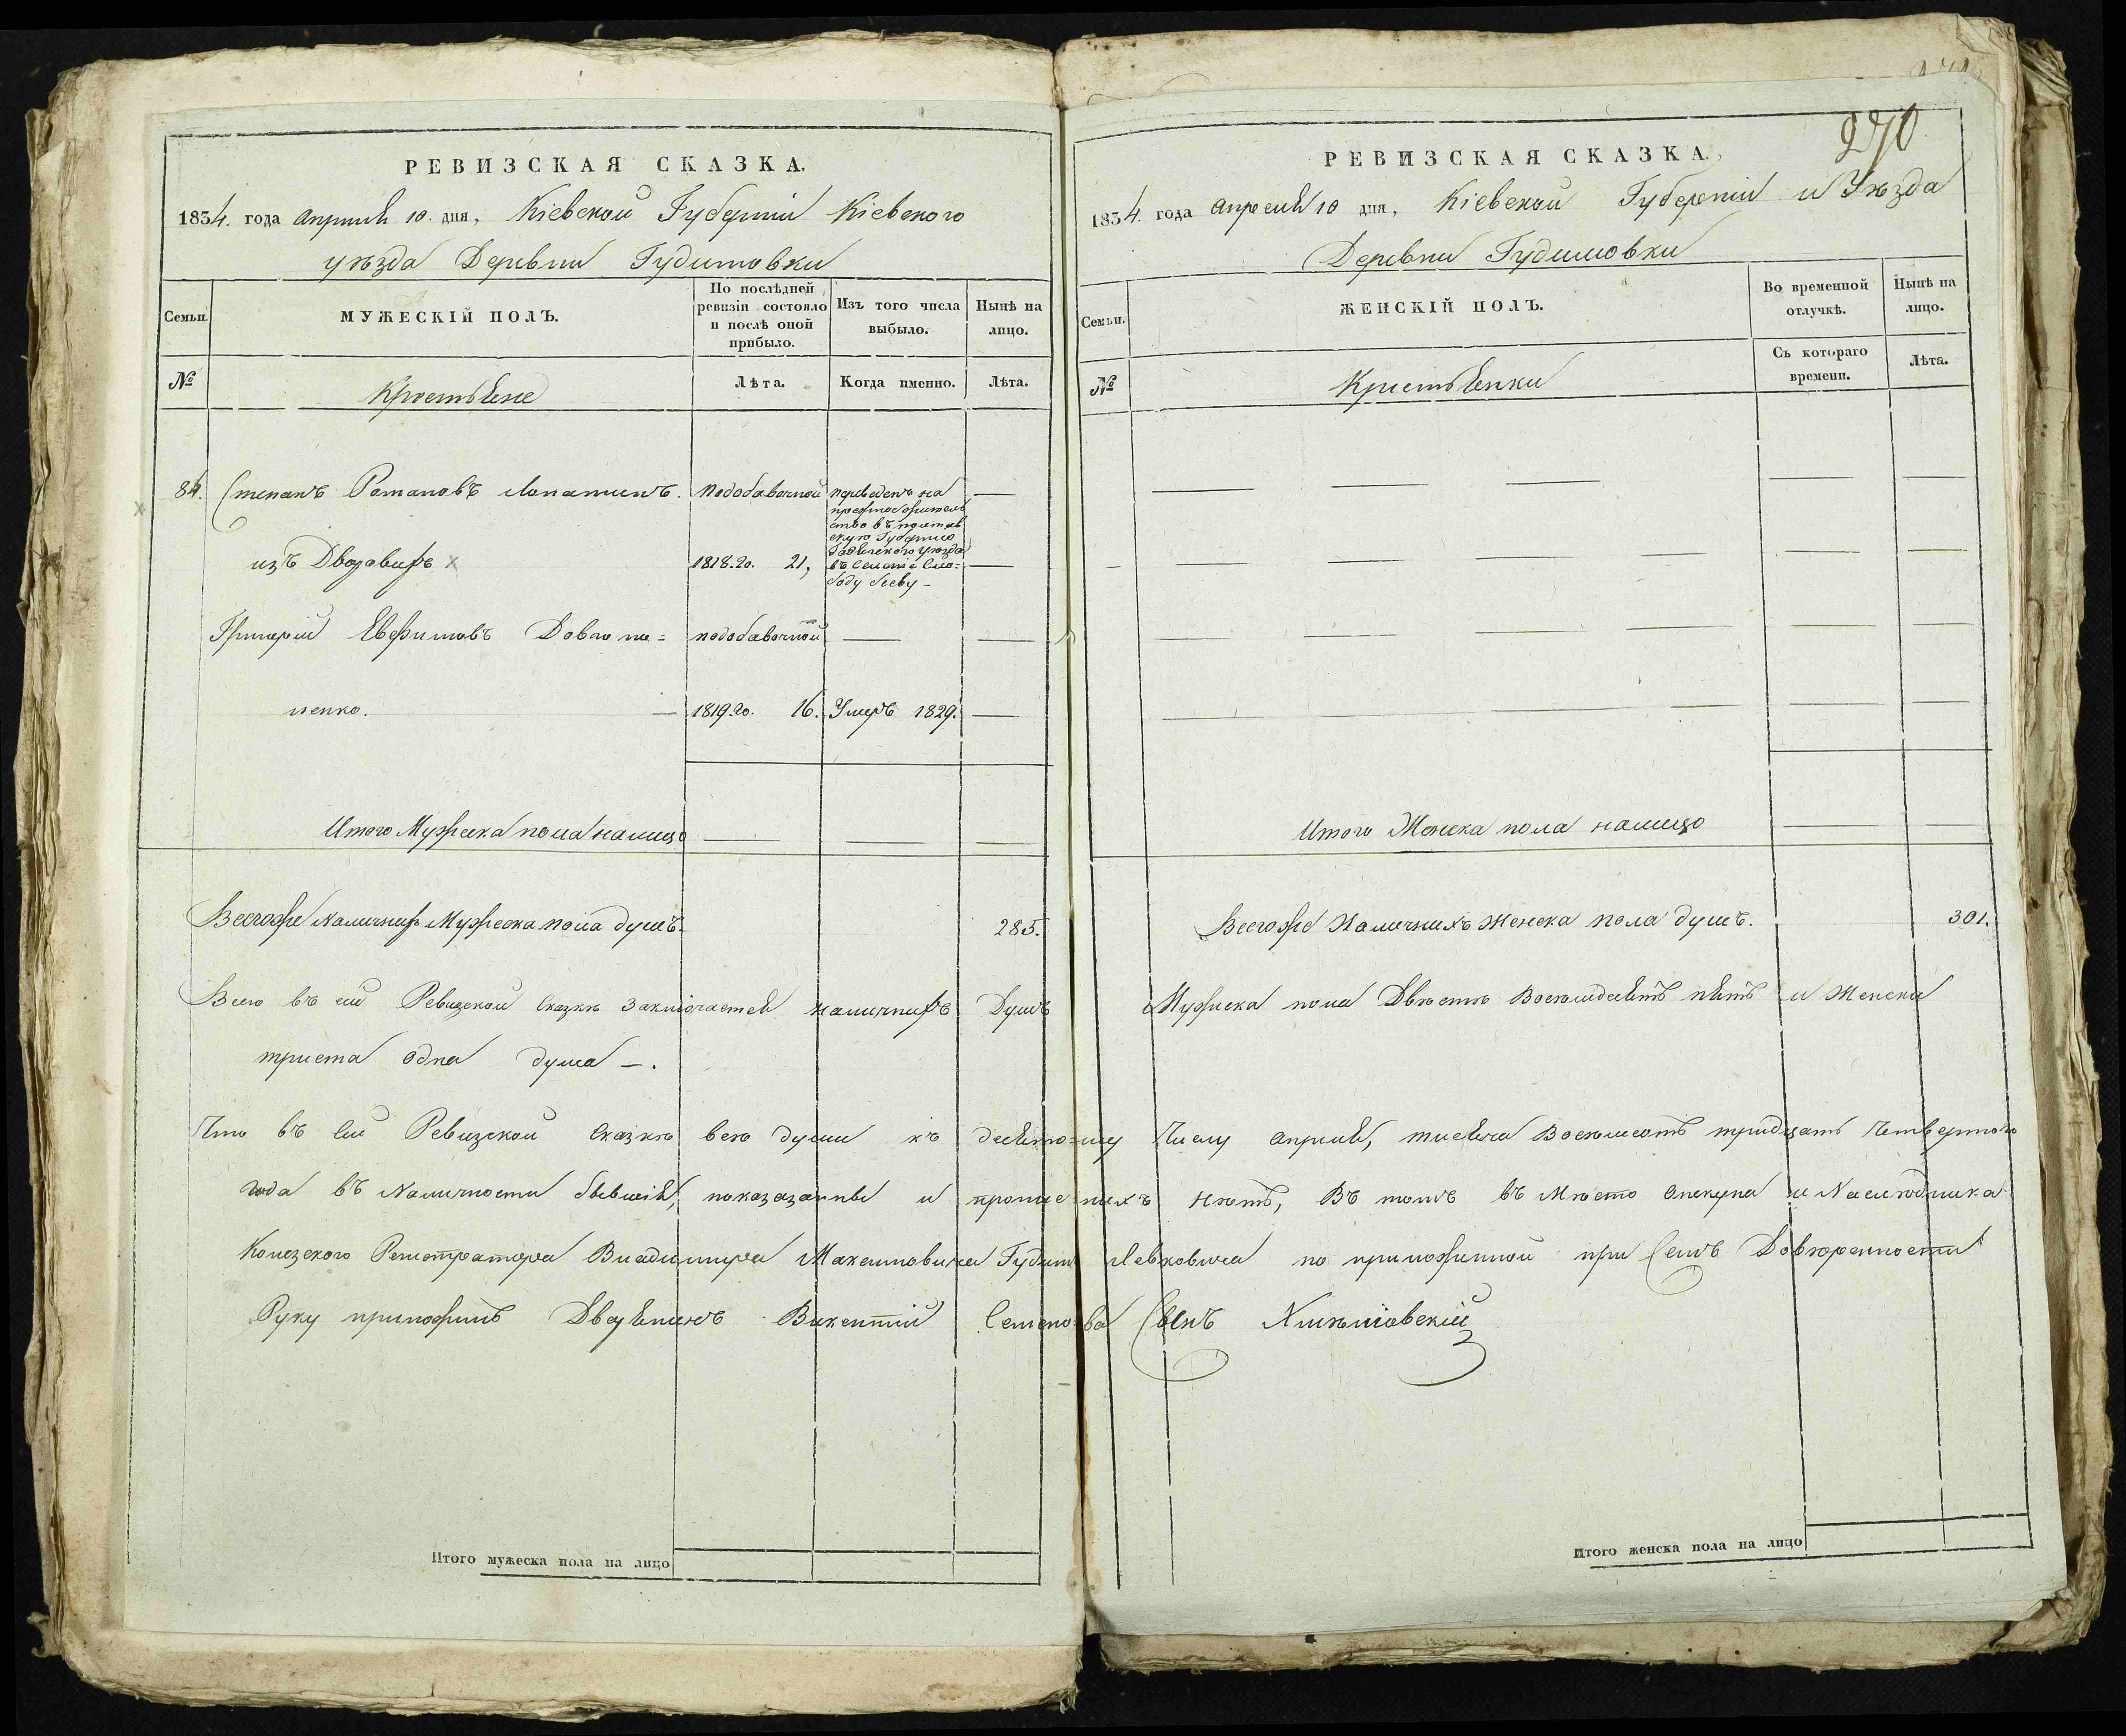 РЕВИЗСКАЯ СКАЗКА.
1834. года Апреля 10. дня, Кіевской Губерніи Кіевского
уѣзда Деревни Гудимовки
Семьи.
МУЖЕСКІЙ ПОЛЪ.
По послѣдней ревизіи состояло и послѣ оной прибыло.
Изъ того числа выбыло.
Нынѣ на лицо.
№
Крестьяне
Лѣта.
Когда именно.
Лѣта.
84. Степанъ Романовъ Лопатинъ. Подобавочной переведенъ на
ство въ Полтав
скую Губернію
уѣзда
изъ Дворовихъ 1818. го. 21,
боду
Григорій Евфимовъ Довго по= подобавочной
ненко. 1819. го. 16. Умеръ 1829.
Итого Мужеска пола налицо
Всегоже Наличнихъ Мужеска пола душъ. 285.
Всего въ сей Ревизской Сказкѣ Заключается наличнихъ Душъ
триста одна душа —.
Что въ сей Ревизской Сказкѣ всѣ души къ десято=му
года въ Наличности бывшія, показазанны и
Колезского Регистратора Владимира Максимовича Гудим
Руку приложилъ Дворянинъ Викентій Семено=ва
Итого мужеска пола на лицо
270
РЕВИЗСКАЯ СКАЗКА.
1834. года Апреля 10 дня, Кіевской Губерніи и Уѣзда
Деревни Гудимовки
Семьи.
ЖЕНСКІЙ ПОЛЪ.
Во временной отлучкѣ.
Нынѣ на лицо.
№
Крестьянки
Съ котораго времени.
Лѣта.
Итого Женска пола налицо
Всегоже Наличнихъ Женска пола душъ. 301.
Мужеска пола Двѣстѣ Восемдесятъ пять и Женска
Числу Апреля, тисяча Восемсотъ тридцать Четвертого
нѣтъ, Въ томъ въ Мѣсто Опекуна и Наслѣдника
Левковича по приложинной при Семъ Довѣренности
Сынъ
Итого женска пола на лицо